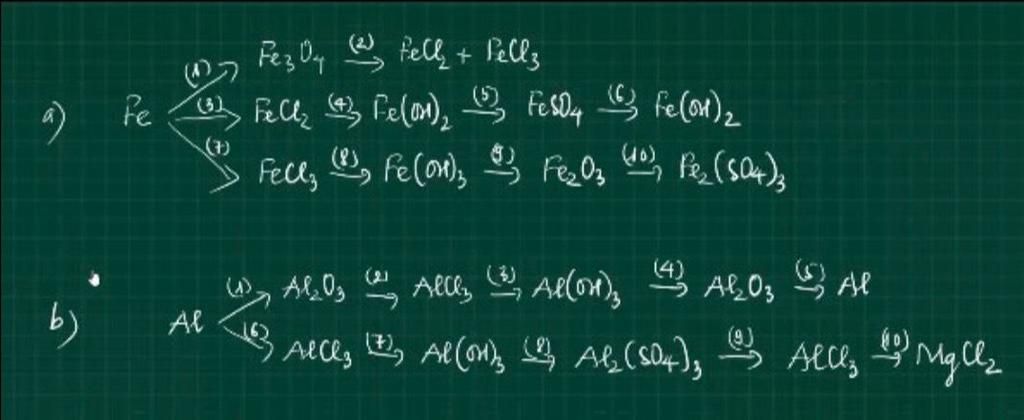 (1) Fe₃O₄ (2)→ FeCl₂ + FeCl₃
a) Fe (3)→ FeCl₂ (4)→ Fe(OH)₂ (5)→ FeSO₄ (6)→ Fe(OH)₂
(7) FeCl₃ (8)→ Fe(OH)₃ (9)→ Fe₂O₃ (10)→ Fe₂(SO₄)₃
(1) Al₂O₃ (2)→ AlCl₃ (3)→ Al(OH)₃ (4)→ Al₂O₃ (5)→ Al
b) Al
(6) AlCl₃ (7)→ Al(OH)₃ (8)→ Al₂(SO₄)₃ (9)→ AlCl₃ (10)→ MgCl₂